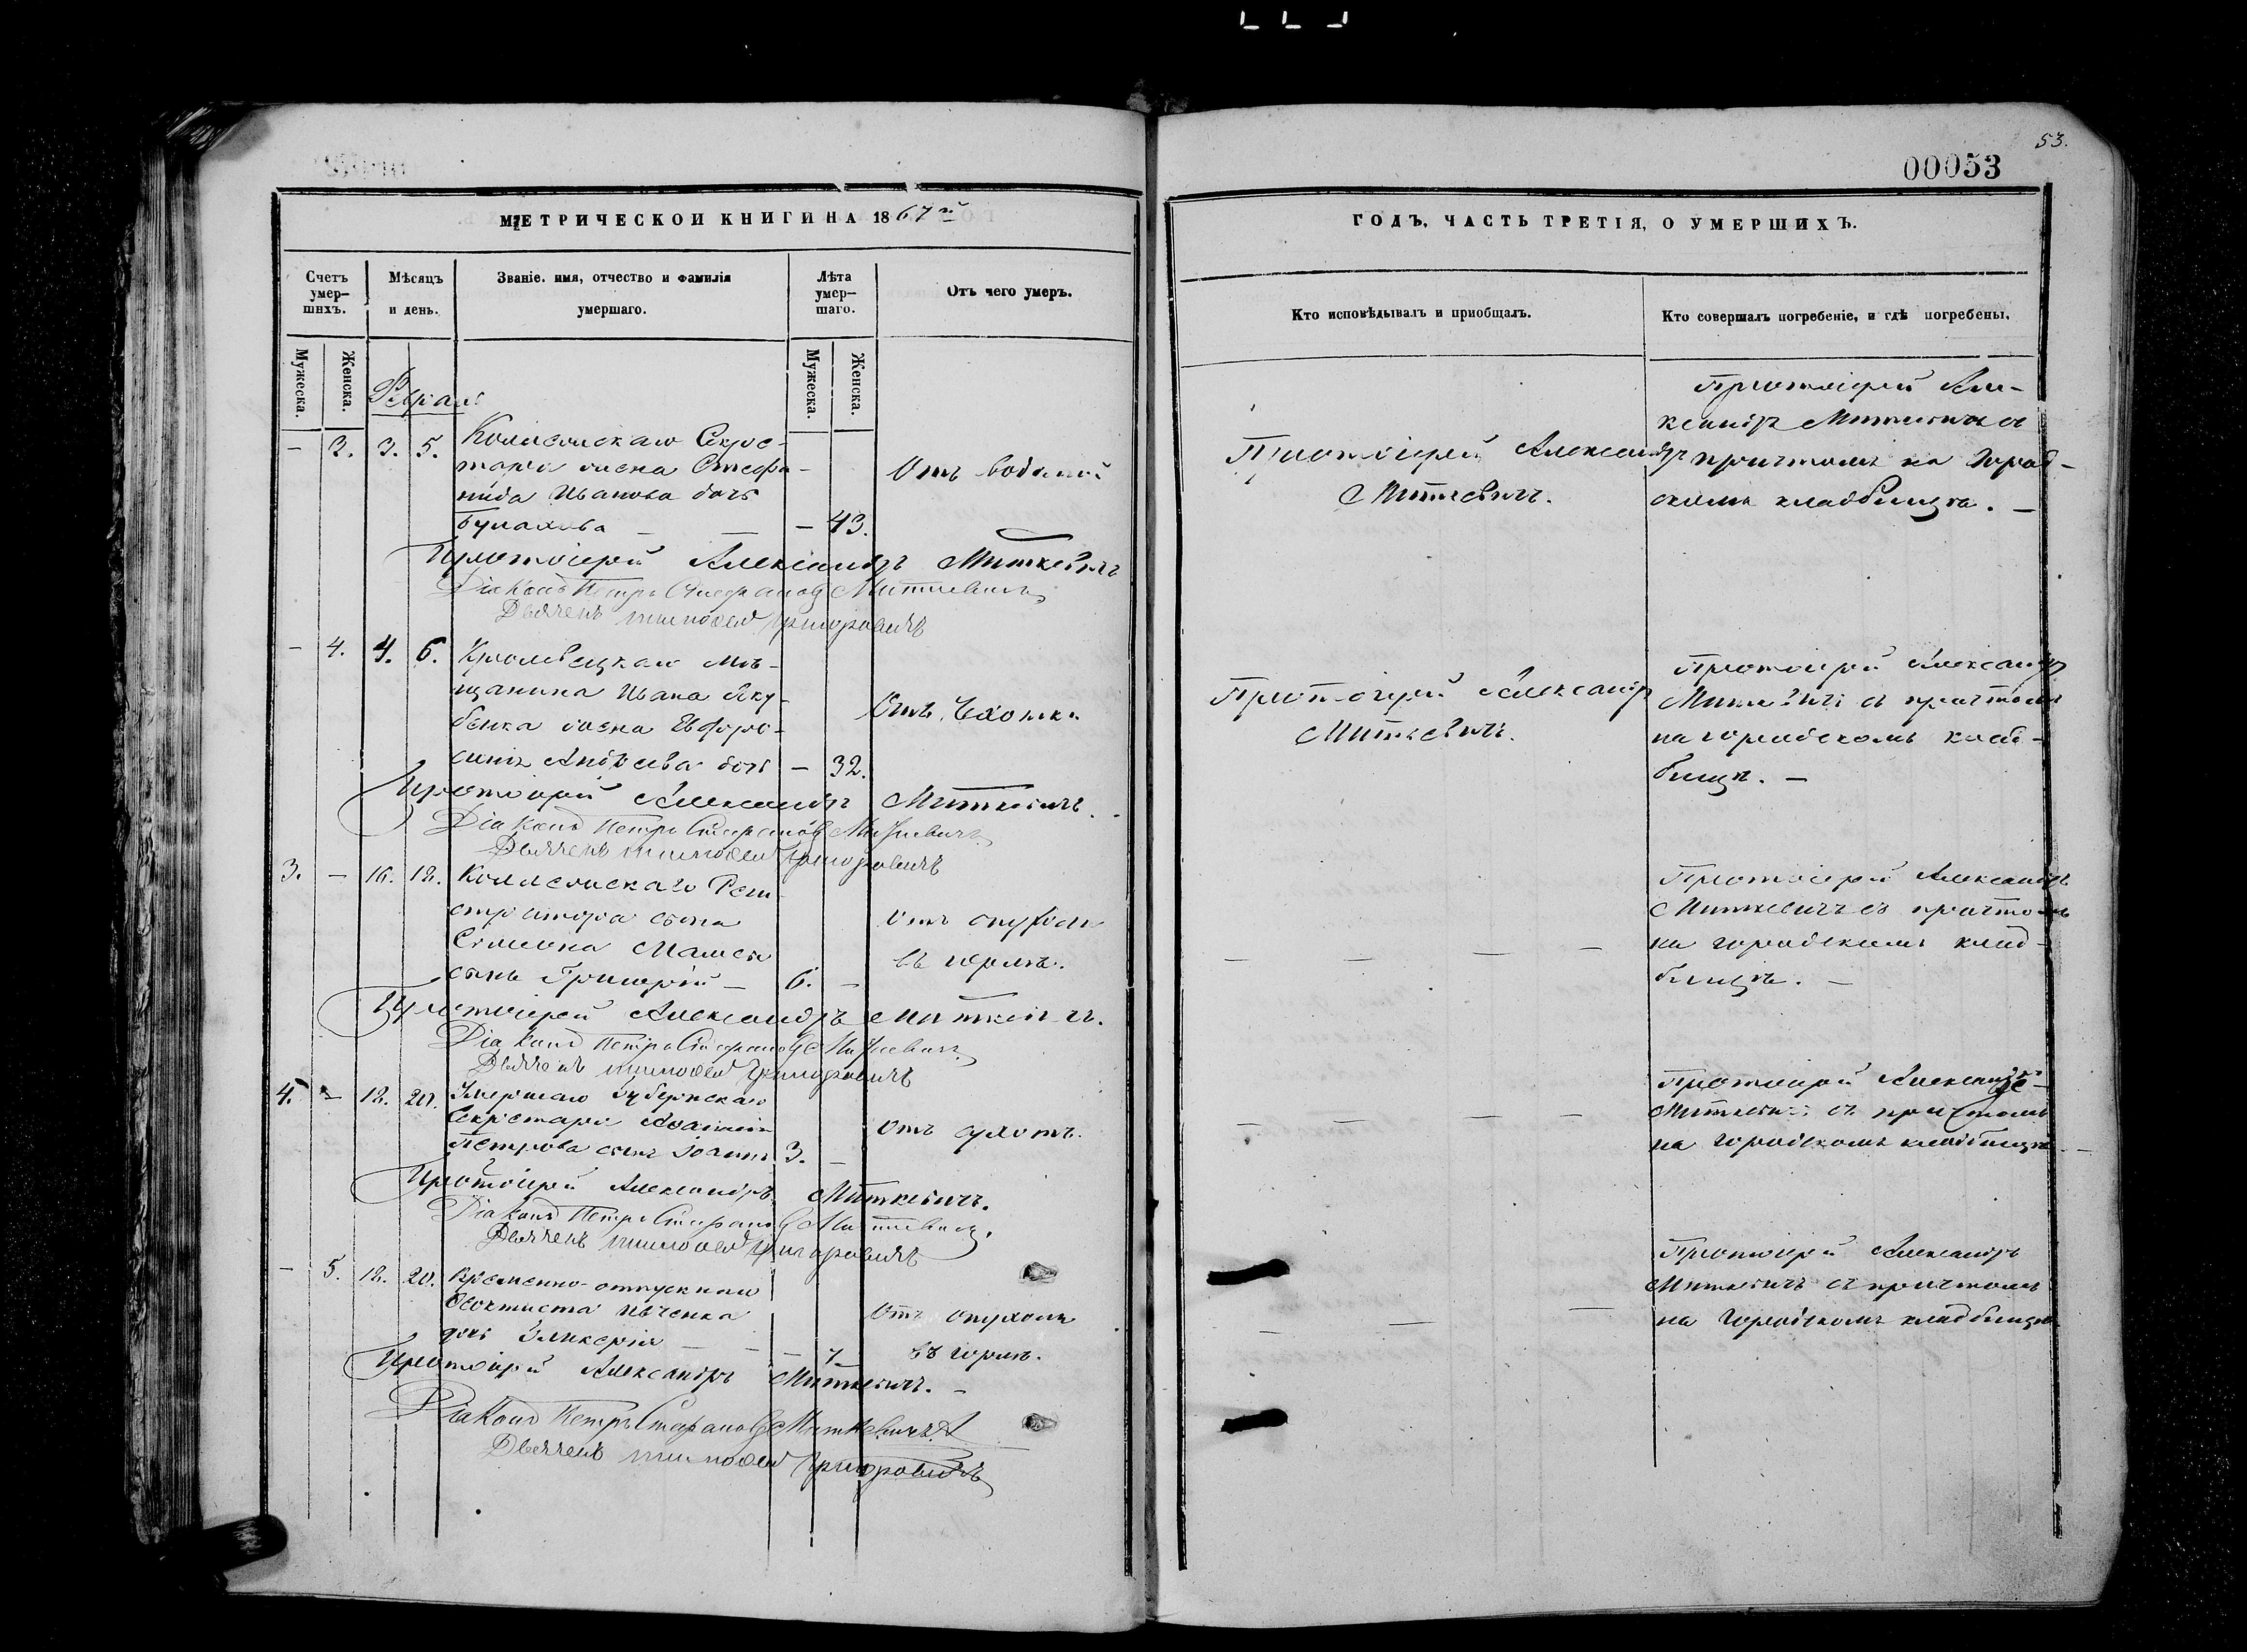 53.
00053
МЕТРИЧЕСКОЙ КНИГИ НА 1867й
ГОДЪ, ЧАСТЬ ТРЕТІЯ, О УМЕРШИХЪ.
Счетъ умер-шихъ.
Мѣсяцъ и день.
Званіе, имя, отчество и фамилія умершаго.
Лѣта умер-шаго.
Отъ чего умеръ.
Кто исповѣдывалъ и приобщалъ.
Кто совершалъ погребеніе, и гдѣ погребены.
Мужеска.
Женска.
Мужеска.
Женска.
— 3. 3. 5. Коллежскаго Секре-
таря жена Стефа-
нида Иванова дочь
— 43.
Отъ водяной
Протоіерей Александръ
Миткевичъ.
Протоіерей Але-
ксандръ Миткевичъ съ
причтомъ на Город-
скомъ кладбищѣ. —
Протоіерей Александръ Миткевичъ
Діаконъ Петръ Стефановъ Миткевичъ
Дьячекъ Тимофей Григоровичъ
— 4. 4. 6. Кролевецкаго мѣ-
щанина Ивана Яку-
бенка жена Евфро-
синія дочь — 32.
Отъ Чахотки
Протоіерей Александръ
Миткевичъ.
Протоіерей Александръ
Миткевичъ съ причтомъ
на городскомъ клад-
бищѣ. —
Протоіерей Александръ Миткевичъ.
Діаконъ Петръ Стефановъ Миткевичъ
Дьячекъ Тимофей Григоровичъ
3. — 16. 18. Коллежскаго Реги-
стратора
Симеона
сынъ Григорій — 6. —
отъ опухоли
въ горлѣ.
— — — —
Протоіерей Александръ
Миткевичъ съ причтомъ
на городскомъ клад-
бищѣ. —
Протоіерей Александръ Миткевичъ.
Діаконъ Петръ Стефановъ Миткевичъ
Дьячекъ Тимофей Григоровичъ
4. — 18. 20. Умершаго Губернскаго
Секретаря
Петрова сынъ Іоаннъ 3. —
отъ сухотъ.
— — — —
Протоіерей Александръ
Миткевичъ съ причтомъ
на городскомъ кладбищѣ —
Протоіерей Александръ Миткевичъ.
Діаконъ Петръ Стефановъ Миткевичъ.
Дьячекъ Тимофей Григоровичъ
— 5. 18. 20. Временно-отпускнаго
Ѳеоктиста Ивченка
дочь Гликерія — — —
Отъ опухоли
въ горлѣ.
— — —
Протоіерей Александръ
Миткевичъ съ причтомъ
на Городскомъ кладбищѣ
Протоіерей Александръ Миткевичъ. —
Діаконъ Петръ Стефановъ Миткевичъ
Дьячекъ Тимофей Григоровичъ